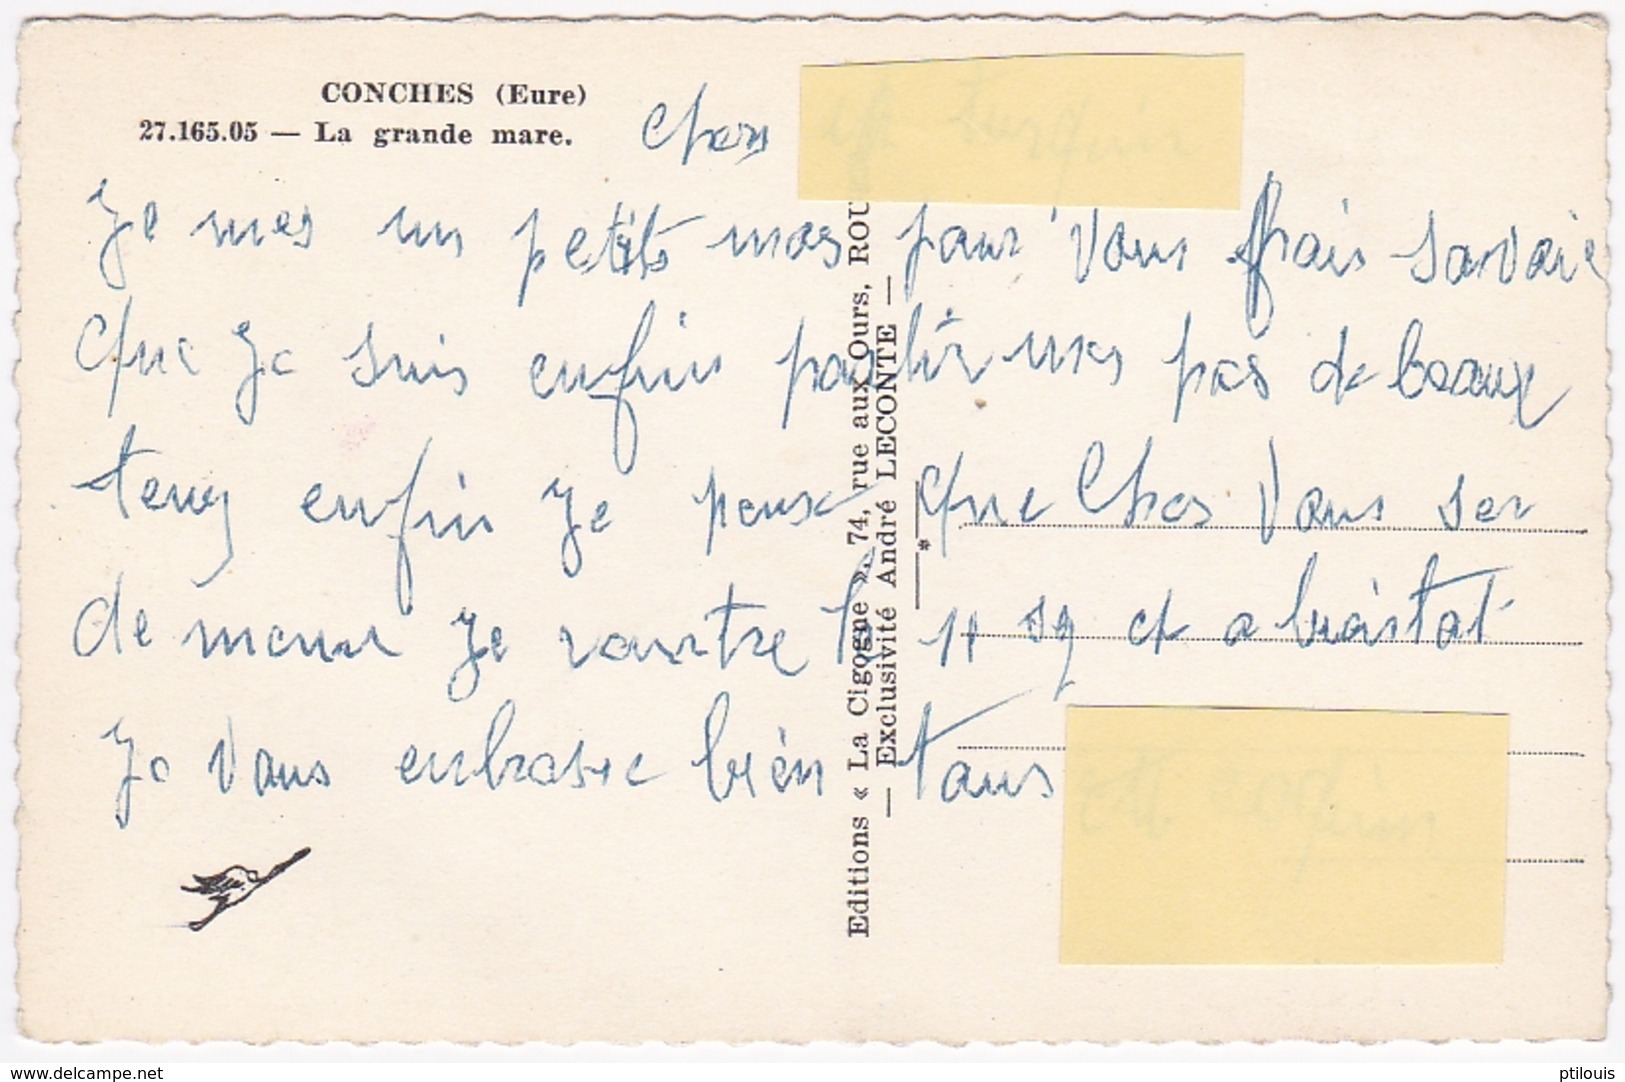 CONCHES (Eure)
27.165.05 — La grande mare.
Chers
Je mes un petits mos pour vous frais savoire
que je suis enfin partir mes pas de beaux
temp enfin je peux que Ches vous ser
de meur je rantre le 11 59 et a biéntot
Je vous enbrasse bièn tous
Editions « La Cigogne », 74, rue aux Ours, ROU
— Exclusivité André LECONTE —
*
delcampe.net
ptilouis